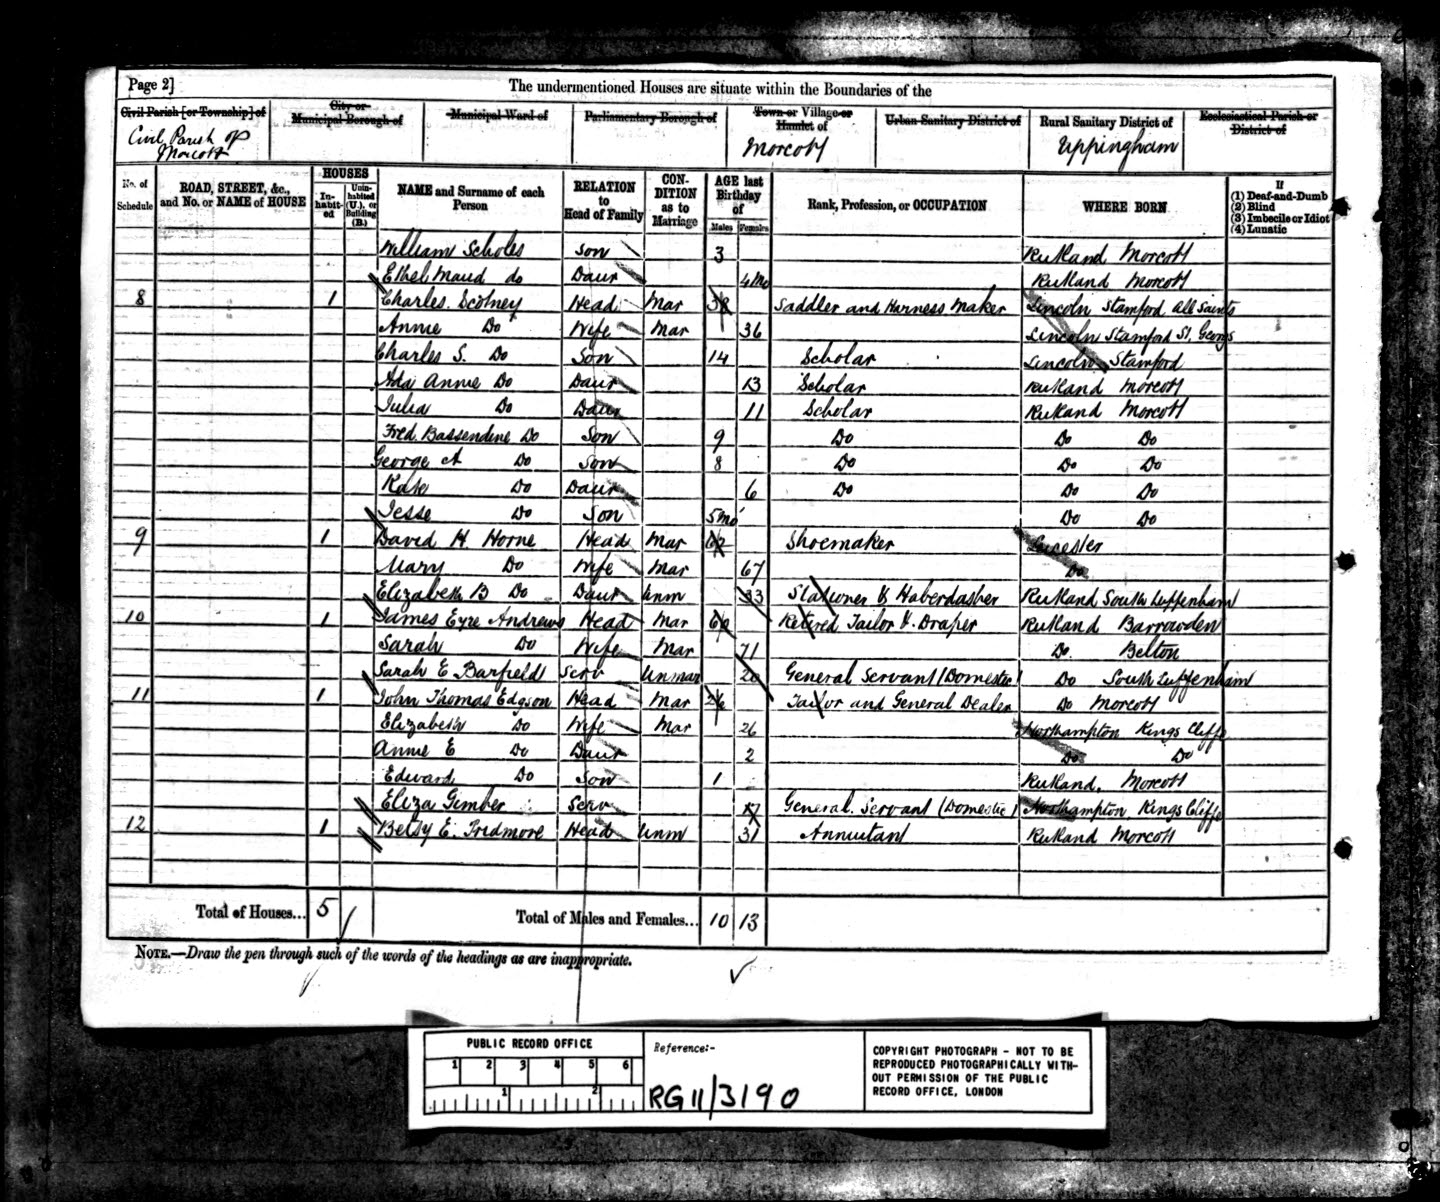 Page 2]
The undermentioned Houses are situate within the Boundaries of the
Civil Parish [or Township] of City or Municipal Borough of Municipal Ward of Parliamentary Borough of Town or Village or Hamlet of Urban Sanitary District of Rural Sanitary District of Ecclesiastical Parish or District of
Civil Parish of Morcott Morcott Uppingham
No. of Schedule ROAD, STREET, &c., and No. or NAME of HOUSE HOUSES Inhabited Uninhabited (U.), or Building (B.) NAME and Surname of each Person RELATION to Head of Family CONDITION as to Marriage AGE last Birthday of Males Females Rank, Profession, or OCCUPATION WHERE BORN If (1) Deaf-and-Dumb (2) Blind (3) Imbecile or Idiot (4) Lunatic
William Scholes Son 3 Rutland Morcott
Ethel Maud do Daur 4 Mo Rutland Morcott
8 1 Charles Scotney Head Mar 38 Saddler and Harness Maker Lincoln Stamford All Saints
Annie Do Wife Mar 36 Lincoln Stamford St. Georgs
Charles S. Do Son 14 Scholar Lincoln Stamford
Ada Annie Do Daur 13 Scholar Rutland Morcott
Julia Do Daur 11 Scholar Rutland Morcott
Fred. Bassendine Do Son 9 Do Do Do
George A Do Son 8 Do Do Do
Kate Do Daur 6 Do Do Do
Jesse Do Son 5 mo Do Do
9 1 David H. Horne Head Mar Shoemaker Leicester
Mary Do Wife Mar 67 Do
Elizabeth B Do Daur Unm 33 Stationer & Haberdasher Rutland South Luffenham
10 1 James Eyre Andrews Head Mar Retired Tailor & Draper Rutland Barrowden
Sarah Do Wife Mar 71 Do Belton
Sarah E Barfield Serv Unmar 20 General Servant (Domestic) Do South Luffenham
11 1 John Thomas Edgson Head Mar 26 Tailor and General Dealer Do Morcott
Elizabeth Do Wife Mar 26 Northampton Kings Cliffe
Annie E Do Daur 2 Do Do
Edward Do Son 1 Rutland, Morcott
Eliza Gimber Serv 17 General Servant (Domestic) Northampton Kings Cliffe
12 1 Betsy E. Pridmore Head Unm 31 Annuitant Rutland Morcott
Total of Houses... 5 Total of Males and Females... 10 13
NOTE.—Draw the pen through such of the words of the headings as are inappropriate.
PUBLIC RECORD OFFICE
1 2 3 4 5 6
1 2
Reference:-
RG 11/3190
COPYRIGHT PHOTOGRAPH - NOT TO BE
REPRODUCED PHOTOGRAPHICALLY WITH-
OUT PERMISSION OF THE PUBLIC
RECORD OFFICE, LONDON